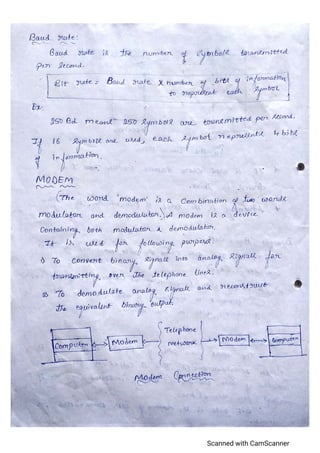 Baud rate:
Baud rate is the number of symbols transmitted
per second.
Bit rate = Baud rate x number of bits of information
to represent each symbol
Ex:
250 Bd means 250 symbols are transmitted per second.
If 16 symbols are used, each symbol represents 4 bits
of information.
MODEM
(The word 'modem' is a combination of two words
modulator and demodulator.) A modem is a device
containing both modulator & demodulator.
It is used for following purpose:
① To convert binary signals into analog signals for
transmitting over the telephone lines.
② To demodulate analog signals and reconstruct
the equivalent binary output.
Computer Modem Telephone Network Modem Computer
Modem Connection
Scanned with CamScanner